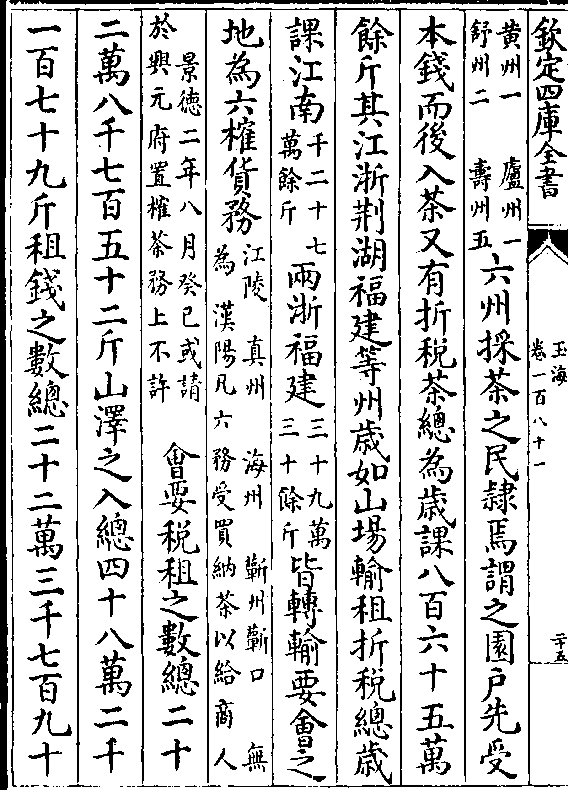 欽定四庫全書
玉海
卷一百八十一
二十五
黄州一　廬州一
舒州二　壽州五
六州採茶之民隸焉謂之園戶先受
本錢而後入茶又有折税茶總為歲課八百六十五萬
餘斤其江浙荆湖福建等州歲如山場輸租折税總歲
課江南
千二十七
萬餘斤
兩浙福建
三十九萬
三十餘斤
皆轉輸要會之
地為六榷貨務
江陵　真州　海州　蘄州蘄口　無
為　漢陽凡六務受買納茶以給商人
景德二年八月癸巳或請
於興元府置榷茶務上不許
會要税租之數總二十
二萬八千七百五十二斤山澤之入總四十八萬二千
一百七十九斤租錢之數總二十二萬三千七百九十